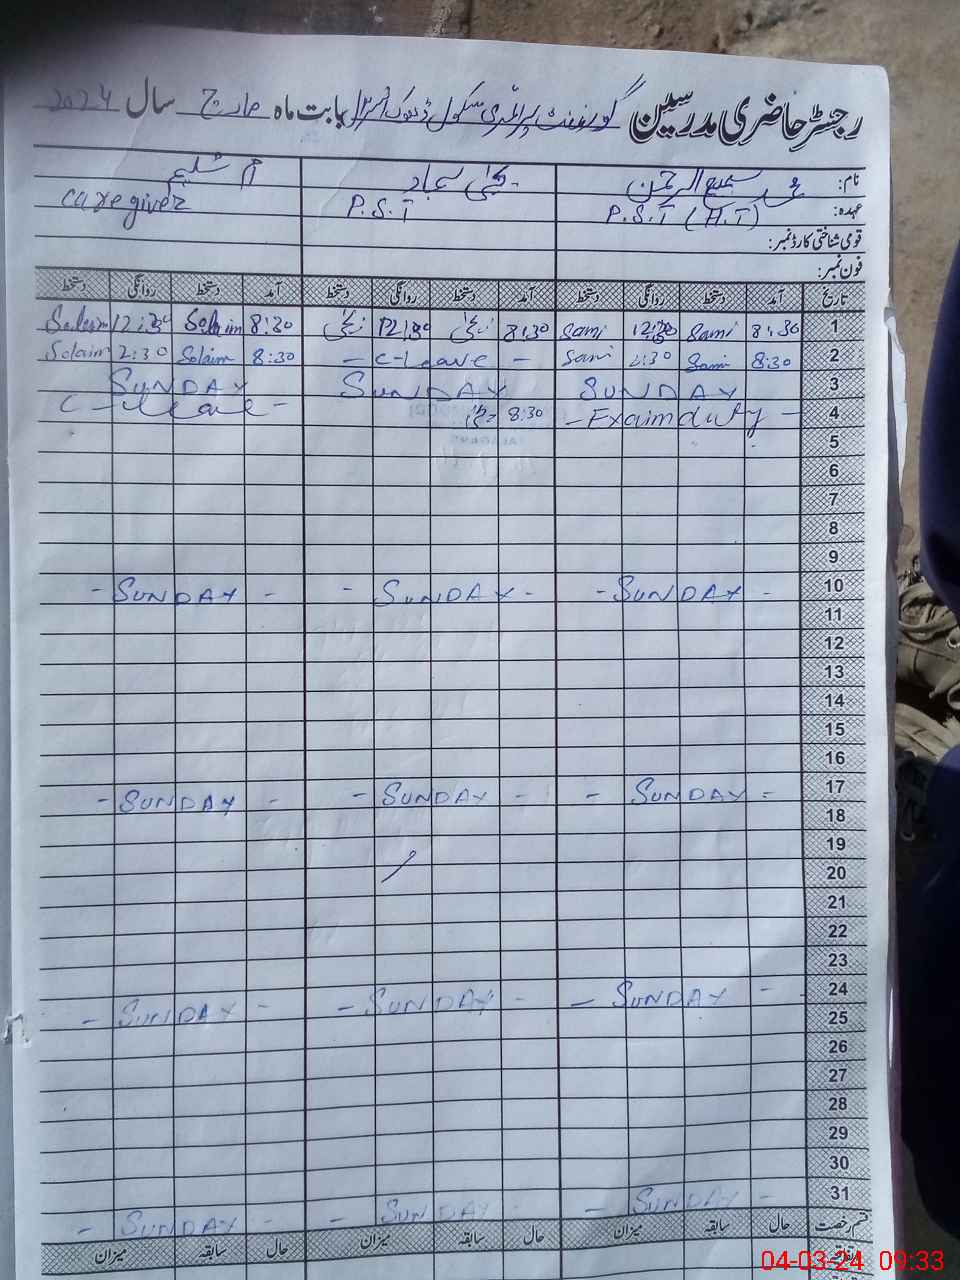 رجسٹر حاضری مدرسین گورنمنٹ پرائمری سکول ڈھوک بابت ماہ مارچ سال 2024
نام: محمد سمیع الرحمن
عہدہ: P.S.T (H.T) P.S.T caregiver
قومی شناختی کارڈ نمبر:
فون نمبر:
تاریخ آمد دستخط روانگی دستخط آمد دستخط روانگی دستخط آمد دستخط روانگی دستخط
1 8:30 Sami 12:30 Sami 8:30 12:30 8:30 Solaim 12:30 Solaim
2 8:30 Sami 2:30 Sami - C-leave - 8:30 Solaim 2:30 Solaim
3 SUNDAY SUNDAY SUNDAY
4 - Exaim duty - 8:30 C-leave -
5
6
7
8
9
10 - SUNDAY - - SUNDAY - - SUNDAY -
11
12
13
14
15
16
17 - SUNDAY - - SUNDAY - - SUNDAY -
18
19
20
21
22
23
24 - SUNDAY - - SUNDAY - - SUNDAY -
25
26
27
28
29
30
31 - SUNDAY - - SUNDAY - - SUNDAY -
قسم رخصت حال سابقہ میزان حال سابقہ میزان حال سابقہ میزان
04-03-24 09:33